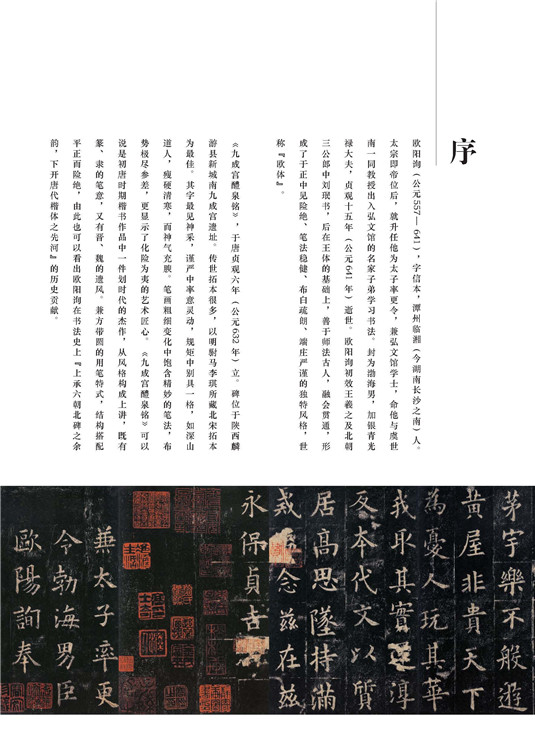 序
欧阳询（公元557—641），字信本，潭州临湘（今湖南长沙之南）人。
太宗即帝位后，就升任他为太子率更令，兼弘文馆学士，命他与虞世
南一同教授出入弘文馆的名家子弟学习书法。封为渤海男，加银青光
禄大夫，贞观十五年（公元641年）逝世。欧阳询初效王羲之及北朝
三公郎中刘珉书，后在王体的基础上，善于师法古人，融会贯通，形
成了于正中见险绝、笔法稳健、布白疏朗、端庄严谨的独特风格，世
称『欧体』。
《九成宫醴泉铭》，于唐贞观六年（公元632年）立。碑位于陕西麟
游县新城南九成宫遗址。传世拓本很多，以明驸马李琪所藏北宋拓本
为最佳。其字最见神采，谨严中率意灵动，规矩中别具一格，如深山
道人，瘦硬清寒，而神气充腴。笔画粗细变化中饱含精妙的笔法，布
势极尽参差，更显示了化险为夷的艺术匠心。《九成宫醴泉铭》可以
说是初唐时期楷书作品中一件划时代的杰作，从风格构成上讲，既有
篆、隶的笔意，又有晋、魏的遗风。兼方带圆的用笔特式，结构搭配
平正而险绝，由此也可以看出欧阳询在书法史上『上承六朝北碑之余
韵，下开唐代楷体之先河』的历史贡献。
茅宇樂不般遊
黄屋非貴天下
為憂人玩其華
我取其實還淳
反本代文以質
居高思墜持滿
戒溢念兹在兹
永保貞吉
兼太子率更
令勃海男臣
歐陽詢奉